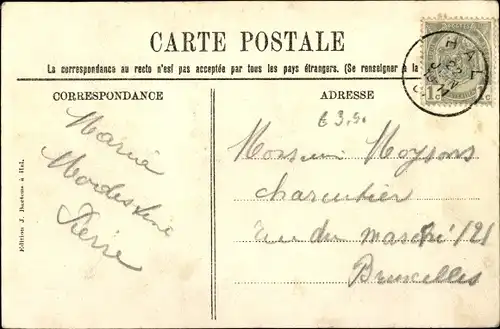 CARTE POSTALE
La correspondance au recto n'est pas acceptée par tous les pays étrangers. (Se renseigner à la
CORRESPONDANCE
ADRESSE
€ 3,50
Maria
Modestine
Pierre
Monsieur Moysons
charcutier
rue du marché 121
Bruxelles
Edition J. Bartens à Hal.
HAL
1c